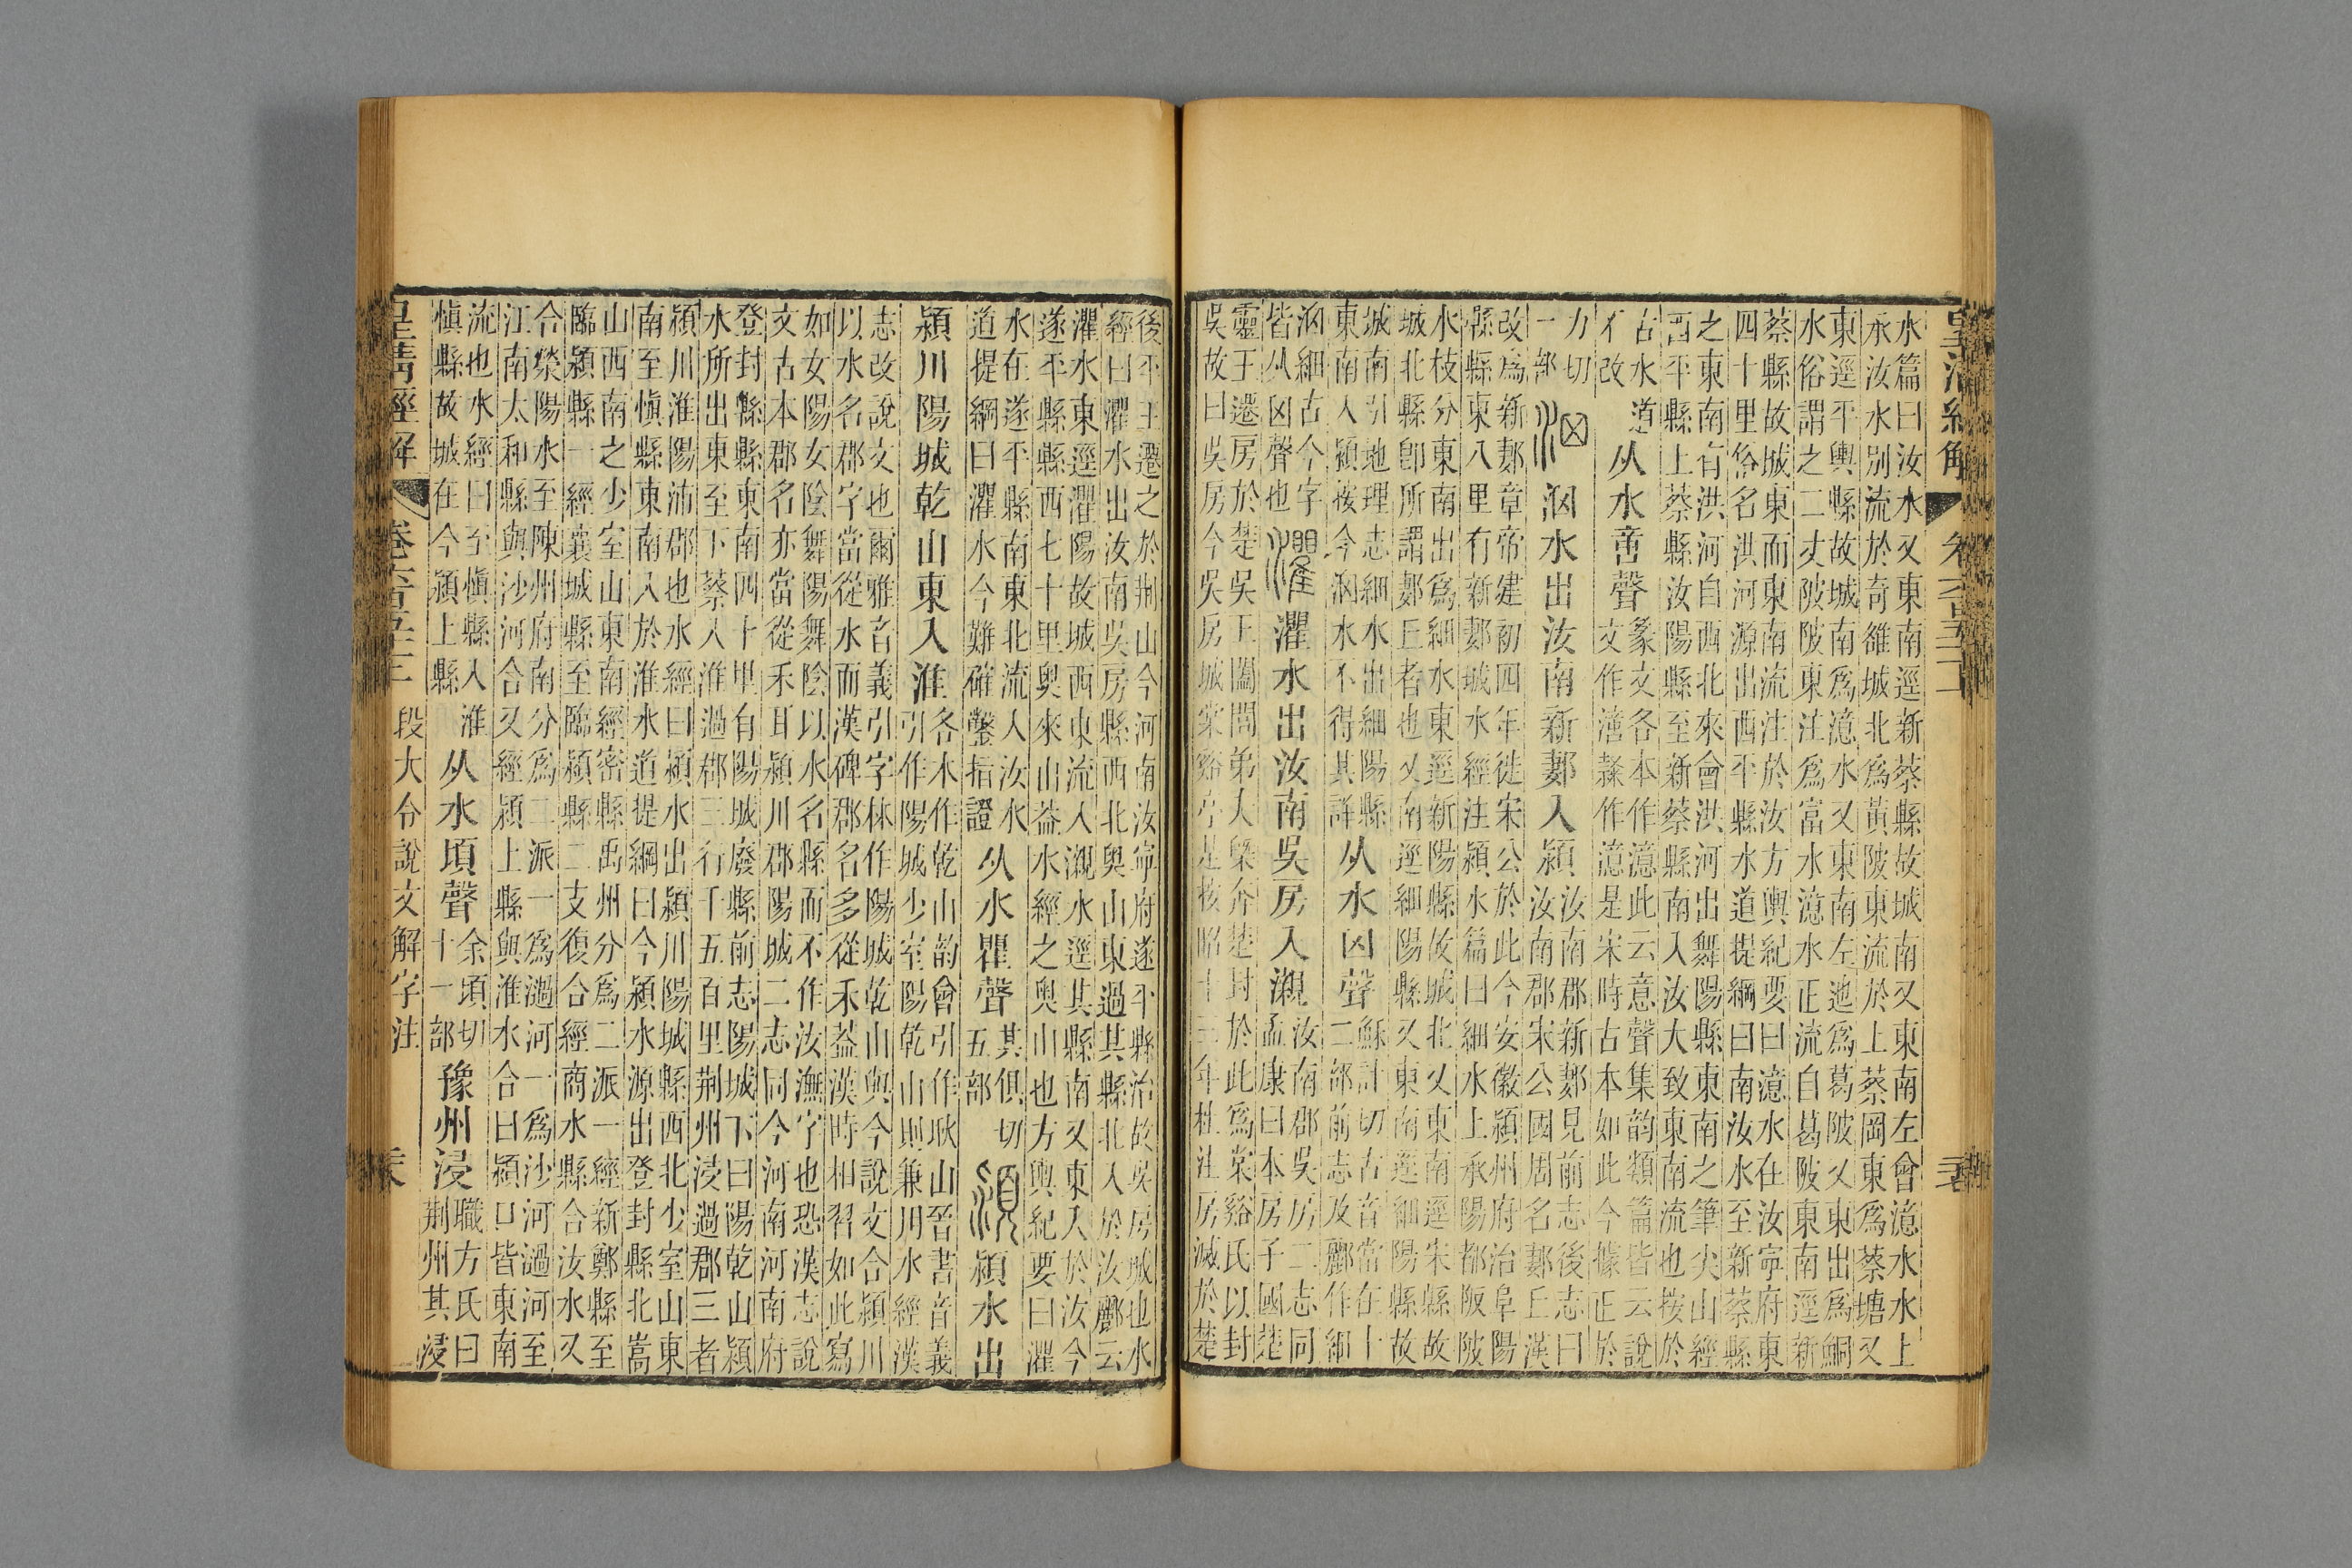 皇清經解 卷六百五十一
水篇曰汝水又東南逕新蔡縣故城南又東南左會澺水水上
承汝水別流於奇雒城北爲黃陂東流於上蔡岡東爲蔡塘又
東逕平輿縣故城南爲澺水又東南左迆爲葛陂又東出爲鮦
水俗謂之二丈陂陂東注爲富水澺水正流自葛陂東南逕新
蔡縣故城東而東南流注於汝方輿紀要曰澺水在汝寧府東
四十里俗名洪河源出西平縣水道提綱曰南汝水至新蔡縣
之東南有洪河自西北來會洪河出舞陽縣東南之筆尖山經
西平縣上蔡縣汝陽縣至新蔡縣南入汝大致東南流也按於
古水道不改从水𠶷聲篆文各本作澺此云意聲集韵類篇皆云說文作澺隷作澺是宋時古本如此今據正於
力切一部洇洇水出汝南新郪入潁汝南郡新郪見前志後志曰汝南郡宋公國周名郪丘漢
改爲新郪章帝建初四年徙宋公於此今安徽潁州府治阜陽
縣縣東八里有新郪城水經注潁水篇曰細水上承陽都陂陂
水枝分東南出爲細水東逕新陽縣故城北又東南逕宋縣故
城北縣卽所謂郪丘者也又南逕細陽縣又東南逕細陽縣故
城南引地理志細水出細陽縣東南入潁按今洇水不得其詳从水囟聲穌計切古音當在十二部前志及酈作細
洇細古今字皆从囟聲也灈灈水出汝南吳房入瀙汝南郡吳房二志同孟康曰本房子國楚
靈王遷房於楚吳王闔閭弟夫槩奔楚封於此爲棠谿氏以封
吳故曰吳房今吳房城棠谿亭是按昭十三年杜注房滅於楚
後平王遷之於荆山今河南汝寧府遂平縣治故吳房城也水
經曰灈水出汝南吳房縣西北奧山東過其縣北入於汝酈云
灈水東逕灈陽故城西東流入瀙水逕其縣南又東入於汝今
遂平縣縣西七十里奧來山葢水經之奧山也方輿紀要曰灈
水在遂平縣南東北流入汝水道提綱曰灈水今難確鑿指證从水瞿聲其俱切五部潁潁水出
潁川陽城乾山東入淮各本作乾山韵會引作耿山晉書音義引作陽城少室陽乾山則兼用水經漢
志改說文也爾雅音義引字林作陽城乾山與今說文合潁川
以水名郡字當從水而漢碑郡名多從禾葢漢時相習如此寫
如女陽女陰舞陽舞陰以水名縣而不作汝潕字也恐漢志說
文古本郡名亦當從禾耳潁川郡陽城二志同今河南河南府
登封縣東南四十里有陽城廢縣前志陽城下曰陽乾山潁
水所出東至下蔡入淮過郡三行千五百里荆州浸過郡三者
潁川淮陽沛郡也水經曰潁水出潁川陽城縣西北少室山東
南至愼縣東南入於淮水道提綱曰今潁水源出登封縣北嵩
山西南之少室山東南經密縣禹州分爲二派一經新鄭縣至
臨潁縣一經襄城縣至臨潁縣二支復合經商水縣合汝水又
合滎陽水至陳州府南分爲二派一爲濄河一爲沙河濄河至
江南太和縣與沙河合又經潁上縣與淮水合曰潁口皆東南
流也水經曰至愼縣入淮愼縣故城在今潁上縣从水頃聲余頃切十一部豫州浸職方氏曰荆州其浸
皇清經解 卷六百五十一 段大令說文解字注